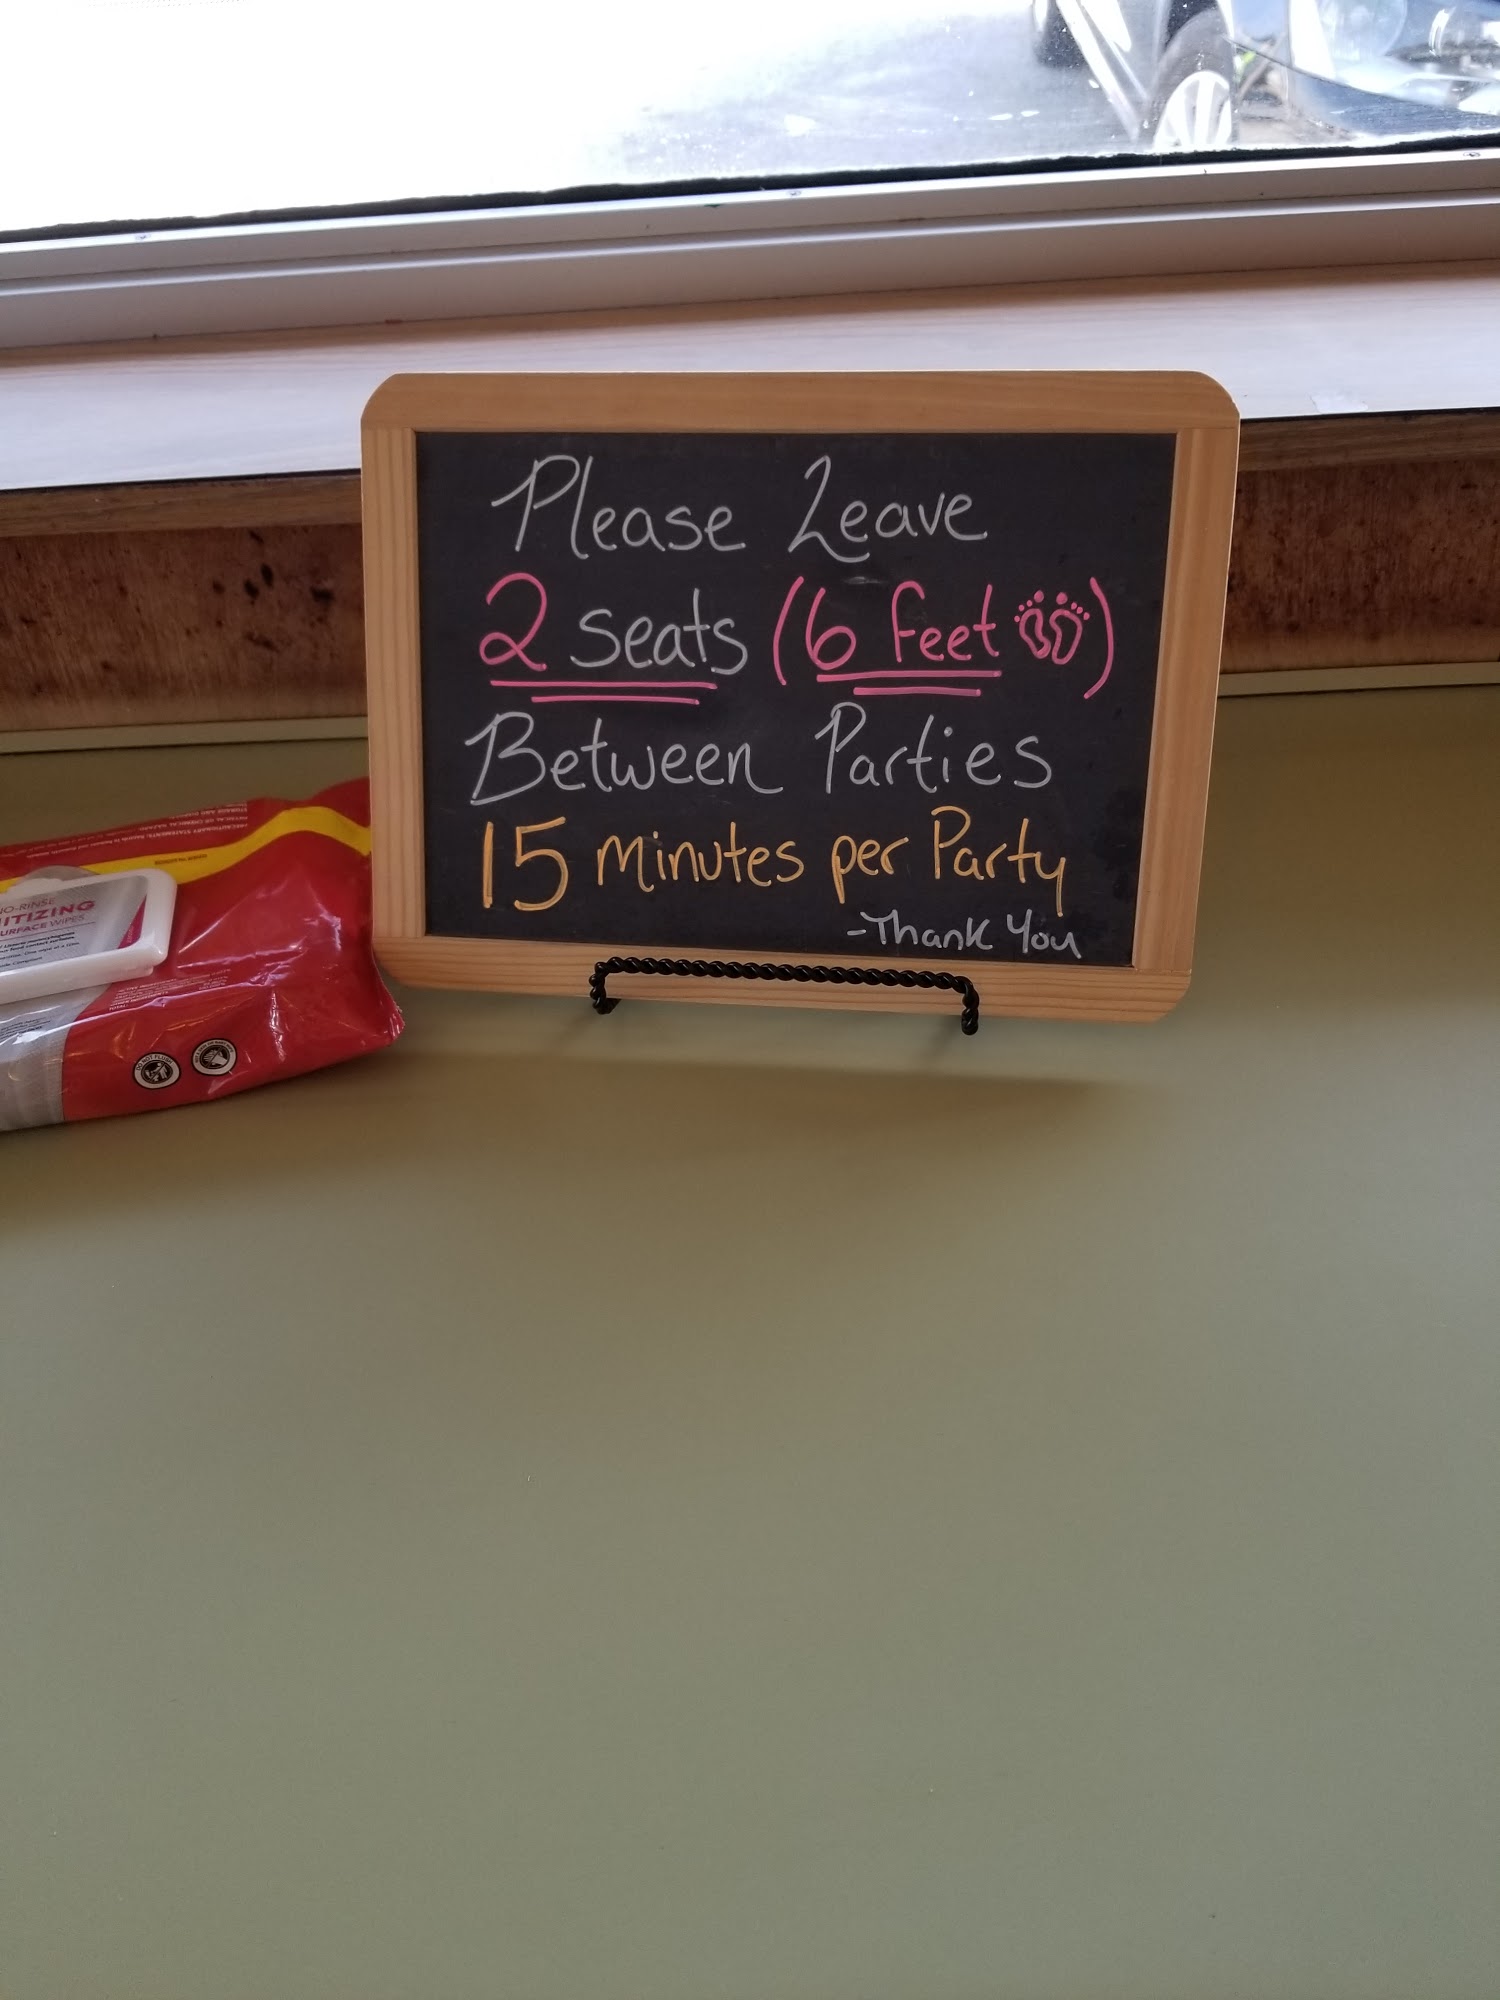 Please Leave
2 seats (6 feet)
Between Parties
15 minutes per Party
-Thank You
NO-RINSE
ITIZING
URFACE WIPES
DO NOT FLUSH